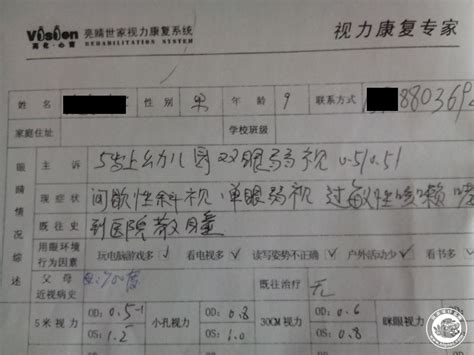 Vision 亮睛世家视力康复系统 视力康复专家
亮化·心苗 REHABILITATION SYSTEM
姓名 性别 男 年龄 9 联系方式 880369
家庭住址 学校班级
眼睛情况综述
主诉 5岁上幼儿园双眼弱视 0.5/0.51
现症状 间歇性斜视 单眼弱视 过敏性咳嗽
既往史 到医院散瞳
用眼环境行为因素 玩电脑游戏多 看电视多 ✓ 读写姿势不正确 ✓ 户外活动少 ✓ 看书多
父母近视病史 700 既往治疗 无
5米视力 OD: 0.5 小孔视力 OD: 0.8 30CM视力 OD: 0.6 眯眼视力
OS: 1.2 OS: 1.0 OS: 0.8